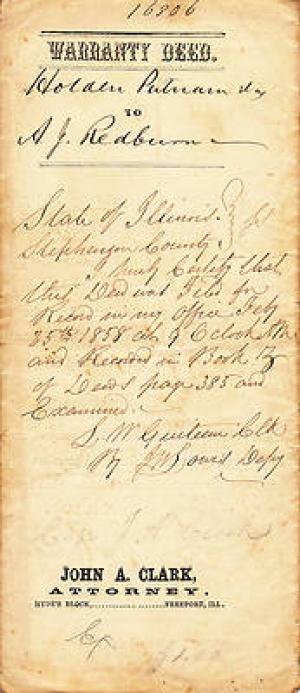 16806
WARRANTY DEED.
Holden Putnam &c
TO
A J. Redburn
State of Illinois } ss
Stephenson County }
I hereby Certify that
this Deed was Filed for
Record in my Office Feby
25th 1858 at 9 O'clock AM
and Record in Book 
of Deeds page 385 and
Examined.
L. W. Guiteau Clk
By JW Depy
JOHN A. CLARK,
ATTORNEY.
HYDE'S BLOCK, FREEPORT, ILL.